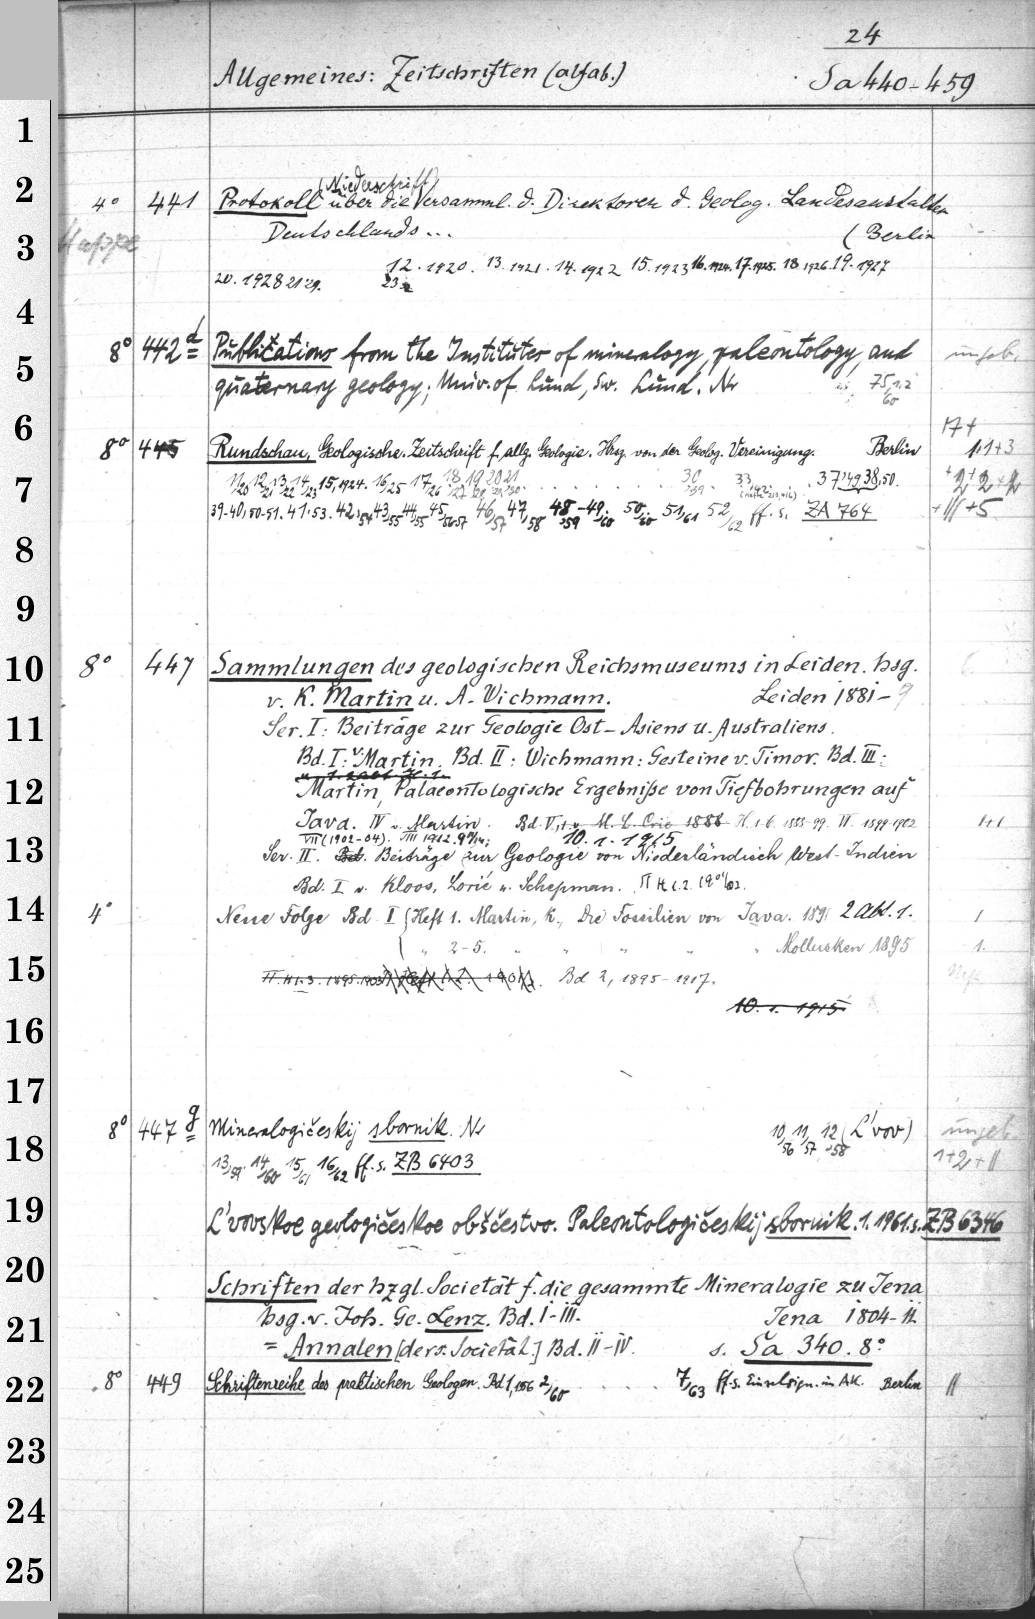 24
Allgemeines: Zeitschriften (alfab.) Sa 440-459
1
(Niederschrift)
2 4° 441 Protokoll über die Versamml. d. Direktoren d. Geolog. Landesanstalten
3 Mappe Deutschlands... (Berlin
12. 1920. 13. 1921. 14. 1922 15. 1923 16. 1924. 17. 1925. 18. 1926. 19. 1927
20. 1928 21 29. 23
4
8° 442 d Publications from the Institutes of mineralogy, paleontology, and ungeb.
5 quaternary geology; Univ. of Lund, Sw. Lund. Nr 75, 1.2 60
6 17+
8° 445 Rundschau, Geologische. Zeitschrift f. allg. Geologie. Hrsg. von der Geolog. Vereinigung. Berlin 1+3
7 11/20 12/21 13/22 14/23 15, 1924. 16/25 17/26 18 19 20 21 30 33 37/49 38, 50. +2+2+2
39-40, 50-51. 41. 53. 42/54 43/55 44/55 45/56-57 46/57 47/58 48-/59 49/60 50/60 51/61 52/62 ff. s. ZA 764 +III+5
8
9
10 8° 447 Sammlungen des geologischen Reichsmuseums in Leiden. hsg.
v. K. Martin u. A. Wichmann. Leiden 1881-9
11 Ser. I: Beiträge zur Geologie Ost-Asiens u. Australiens.
Bd. I: v. Martin. Bd. II: Wichmann: Gesteine v. Timor. Bd. III:
12 Martin, Palaeontologische Ergebniße von Tiefbohrungen auf
Java. IV v. Martin. Bd. V, 1888 H. 1-6. 1888-99. VI. 1899-1902 1+1
13 VII (1902-04). VIII 1912. 10. 1. 1915
Ser. II. Bd. Beiträge zur Geologie von Niederländisch West-Indien
Bd. I v. Kloos, Lorié u. Schepman. II H. 1.2. 1901/02.
14 4° Neue Folge Bd I Heft 1. Martin, K., Die Fossilien von Java. 1891 2 Abt. 1. 1
" 2-5. " " " " " Mollusken 1895 1.
15 II. H 1-3. 1895-1903 Bd 2, 1895-1917.
10. 1. 1915
16
17
8° 447 g Mineralogičeskij sbornik. Nr 10/56 11/57 12/58 (L'vov) ungeb.
18 13/59. 14/60 15/61 16/62 ff. s. ZB 6403 1+2+11
19 L'vovskoe geologičeskoe obščestvo. Paleontologičeskij sbornik. 1. 1961. s. ZB 6346
20
Schriften der hzgl. Societät f. die gesammte Mineralogie zu Jena
21 hsg. v. Joh. Ge. Lenz. Bd. I-III. Jena 1804-11.
= Annalen [ders. Societät.] Bd. II-IV. s. Sa 340. 8°.
22 8° 449 Schriftenreihe des praktischen Geologen. Bd 1, 1956 2/60 7/63 ff. s. Einzelsign. in AK. Berlin II
23
24
25